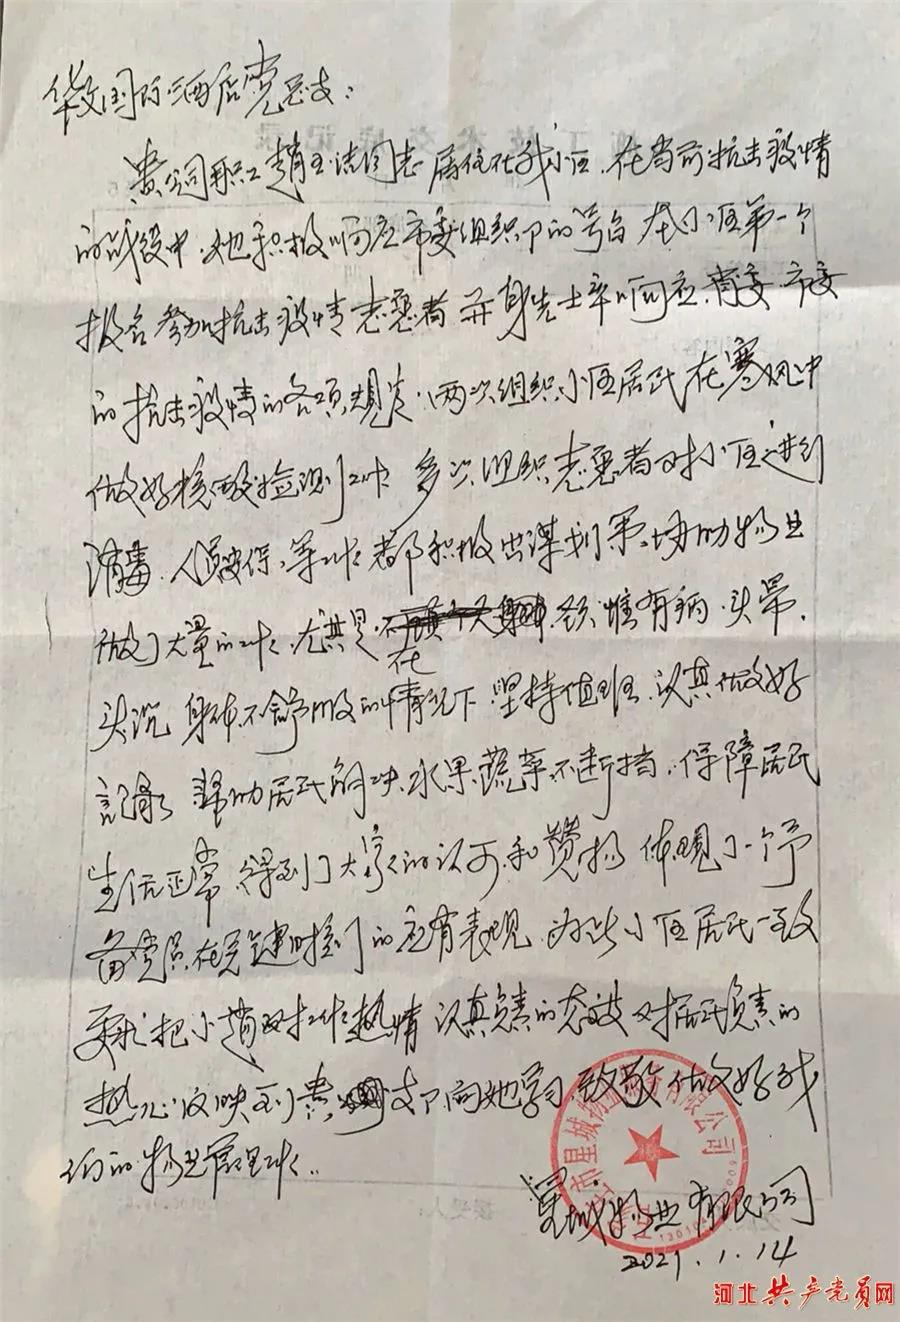 国际酒店党总支：
贵公司职工赵玉洁同志居住在我小区，在当前抗击疫情
的战役中，她积极响应市委组织部的号召，在小区第一个
报名参加抗击疫情志愿者并身先士卒响应省委、市委
的抗击疫情的各项规定，两次组织小区居民在寒风中
做好核酸检测工作，多次组织志愿者对小区进行
消毒、等工作都积极出谋划策，协助物业
做了大量的工作，尤其是有病、头晕、
在
头沉、身体不舒服的情况下坚持值班，认真做好
记录，帮助居民解决水果蔬菜不断档，保障居民
生活正常，得到了大家的认可和赞扬，体现了一个予
备党员在关键时刻的应有表现，为此小区居民一致
要求把小赵对工作热情，认真负责的态度，对居民负责的
热心反映到贵支部，向她学习，致敬，做好我
们的物业管理工作。
星城物业有限公司
2021.1.14
市星城物业有限公司
河北共产党员网